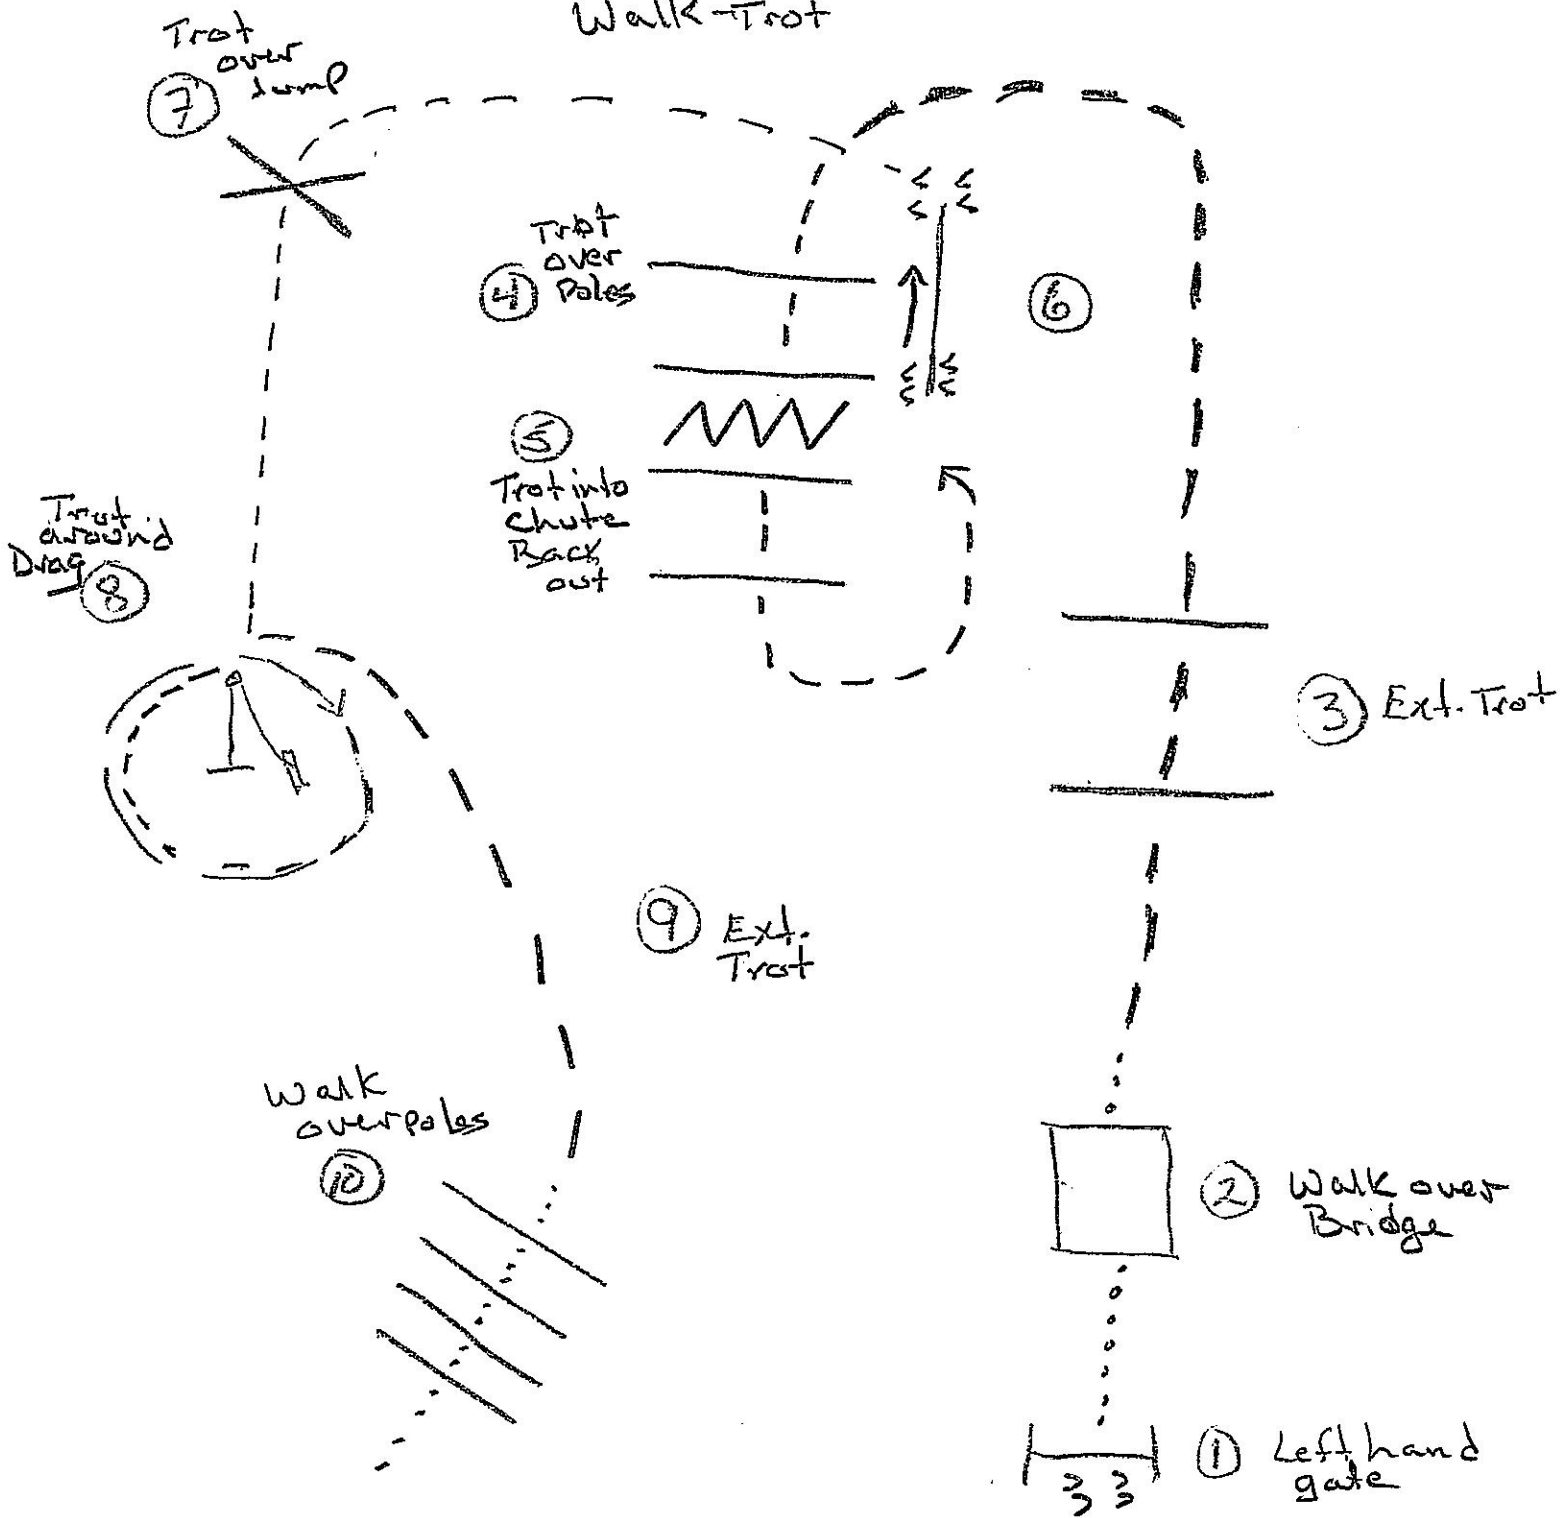 Walk-Trot
Trot
over
Jump
7
Trot
over
Poles
4
6
5
Trot into
Chute
Back
out
Trot
around
Drag
8
3 Ext. Trot
9 Ext.
Trot
Walk
over poles
10
2 Walk over
Bridge
1 Left hand
gate